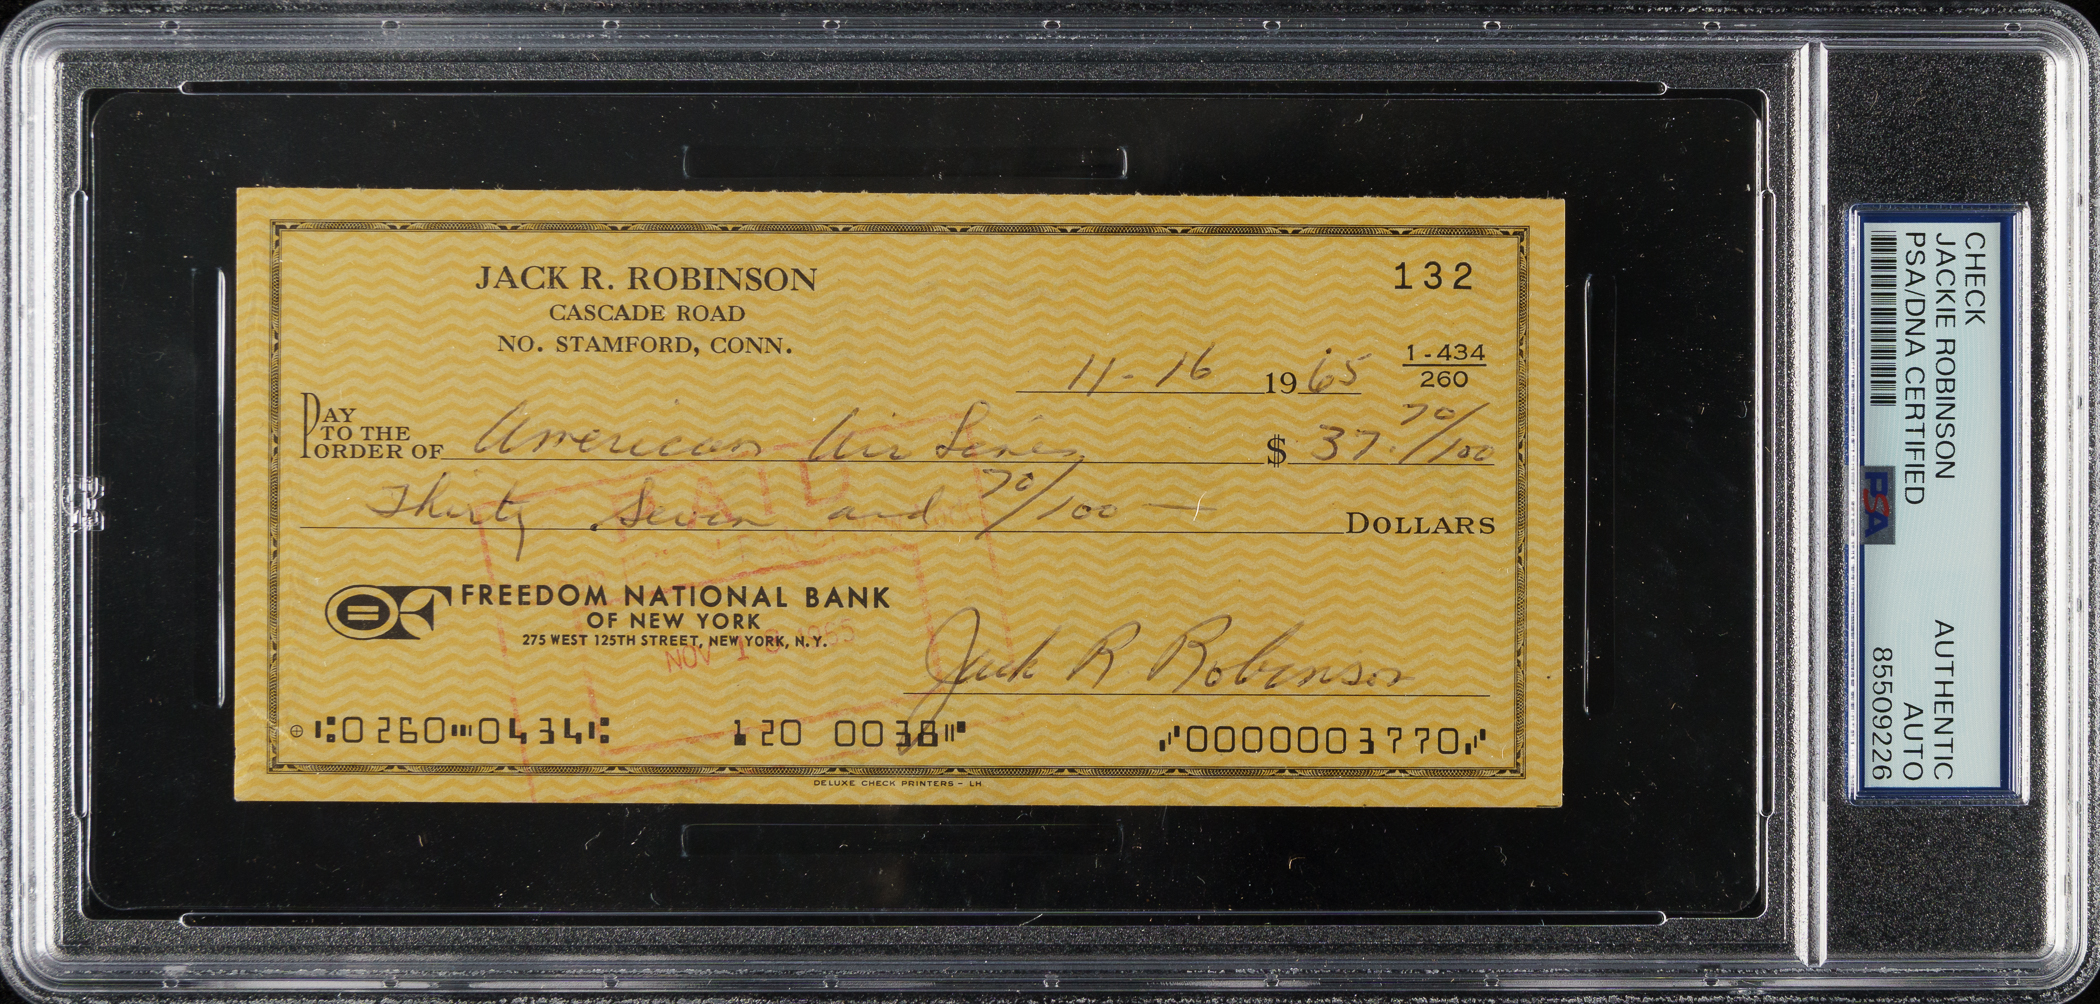 JACK R. ROBINSON
CASCADE ROAD
NO. STAMFORD, CONN.
132
11-16 1965
1-434
260
PAY TO THE ORDER OF American Air Lines $ 37.70/100
Thirty Seven and 70/100 — DOLLARS
PAID
FREEDOM NATIONAL BANK
OF NEW YORK
275 WEST 125TH STREET, NEW YORK, N.Y.
NOV 1 1965
Jack R Robinson
0260 0434 120 0038 0000003770
DELUXE CHECK PRINTERS - LH
CHECK
JACKIE ROBINSON
PSA/DNA CERTIFIED
AUTHENTIC
AUTO
85509226
PSA